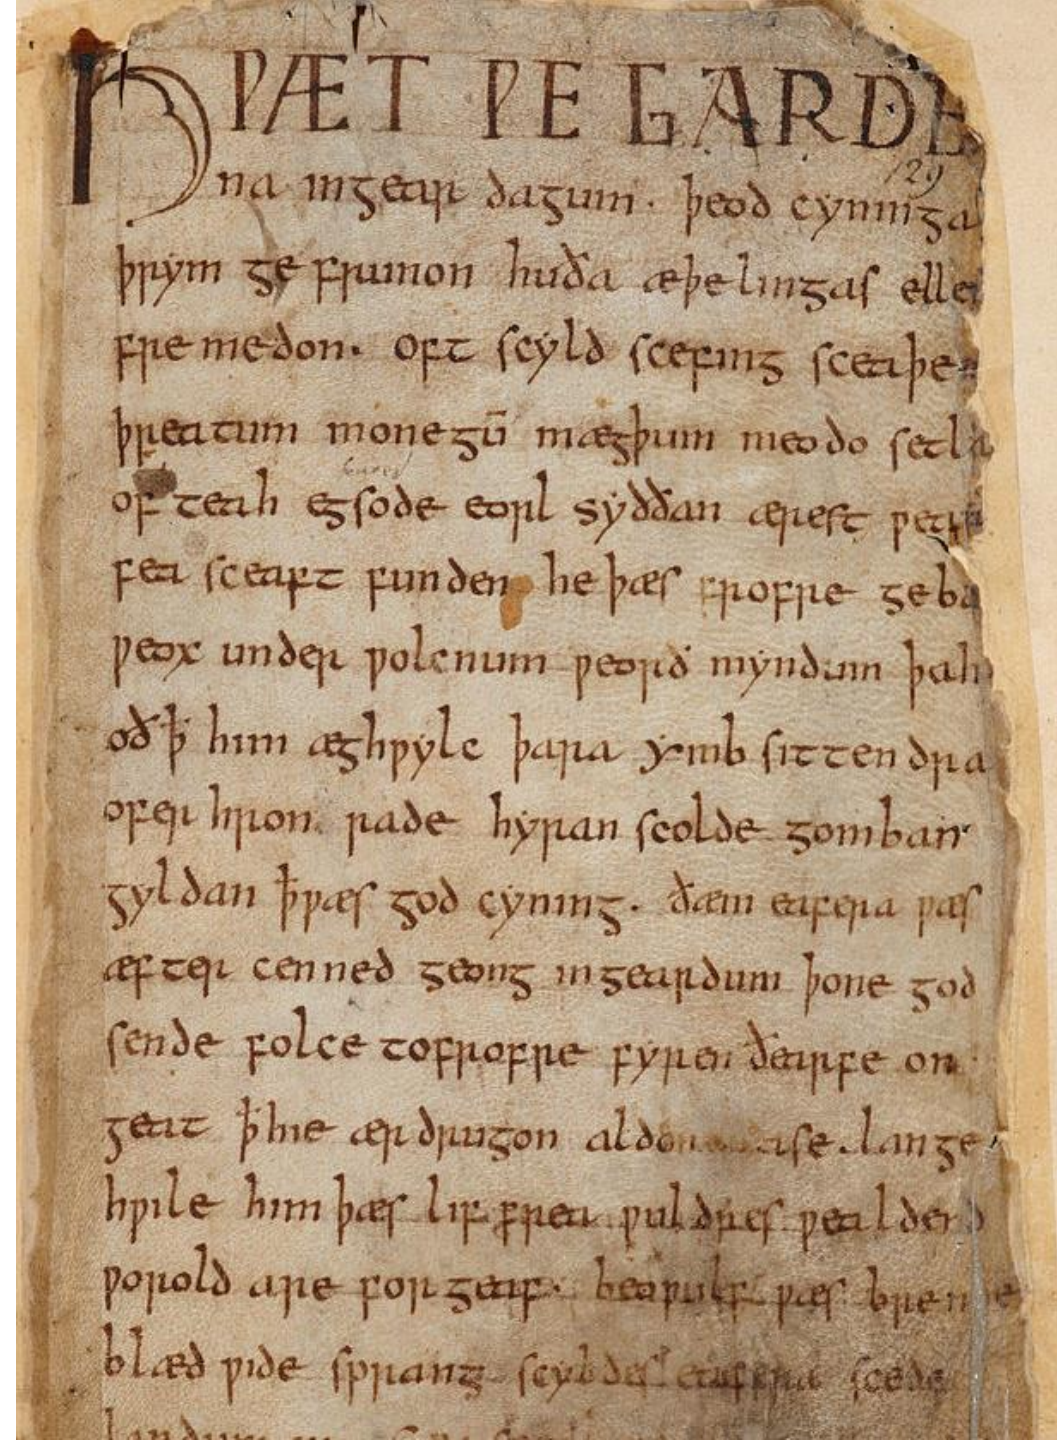 HǷÆT ǷE GARDE
129
na ingear dagum. þeod cyninga
þrym ge frunon huða æþelingas elle
fre medon. oft scyld scefing sceaþe
þreatum monegū mægþum meodo setla
of teah egsode eorl syððan ærest ƿear
fea sceaft funden he þæs frofre geba
ƿeox under ƿolcnum ƿeorð myndum þah
oð ꝥ him æghƿylc þara ymb sittendra
ofer hron rade hyran scolde gomban
gyldan ꝥ ƿæs god cyning. ðæm eafera ƿæs
æfter cenned geong ingeardum þone god
sende folce tofrofre fyren ðearfe on
geat ꝥ hie ær drugon aldor ase. lange
hƿile him þæs lif frea ƿuldres ƿealdend
ƿorold are for geaf. beoƿulf ƿæs breme
blæd ƿide sprang scyldes eafera scede
landum in